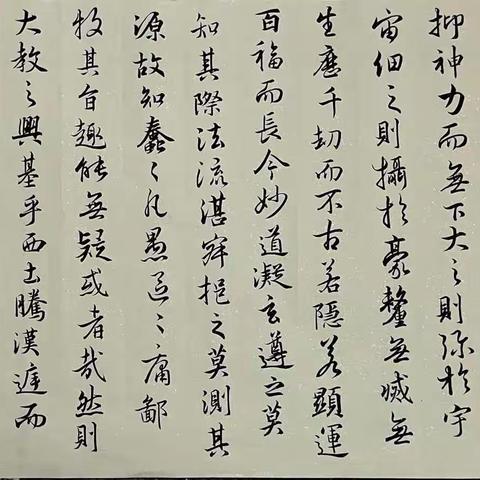 抑神力而無下大之則弥於宇
宙細之則攝於豪釐無滅無
生歷千劫而不古若隱若顯運
百福而長今妙道凝玄遵之莫
知其際法流湛寂挹之莫測其
源故知蠢〻凡愚區〻庸鄙
投其旨趣能無疑或者哉然則
大教之興基乎西土騰漢庭而